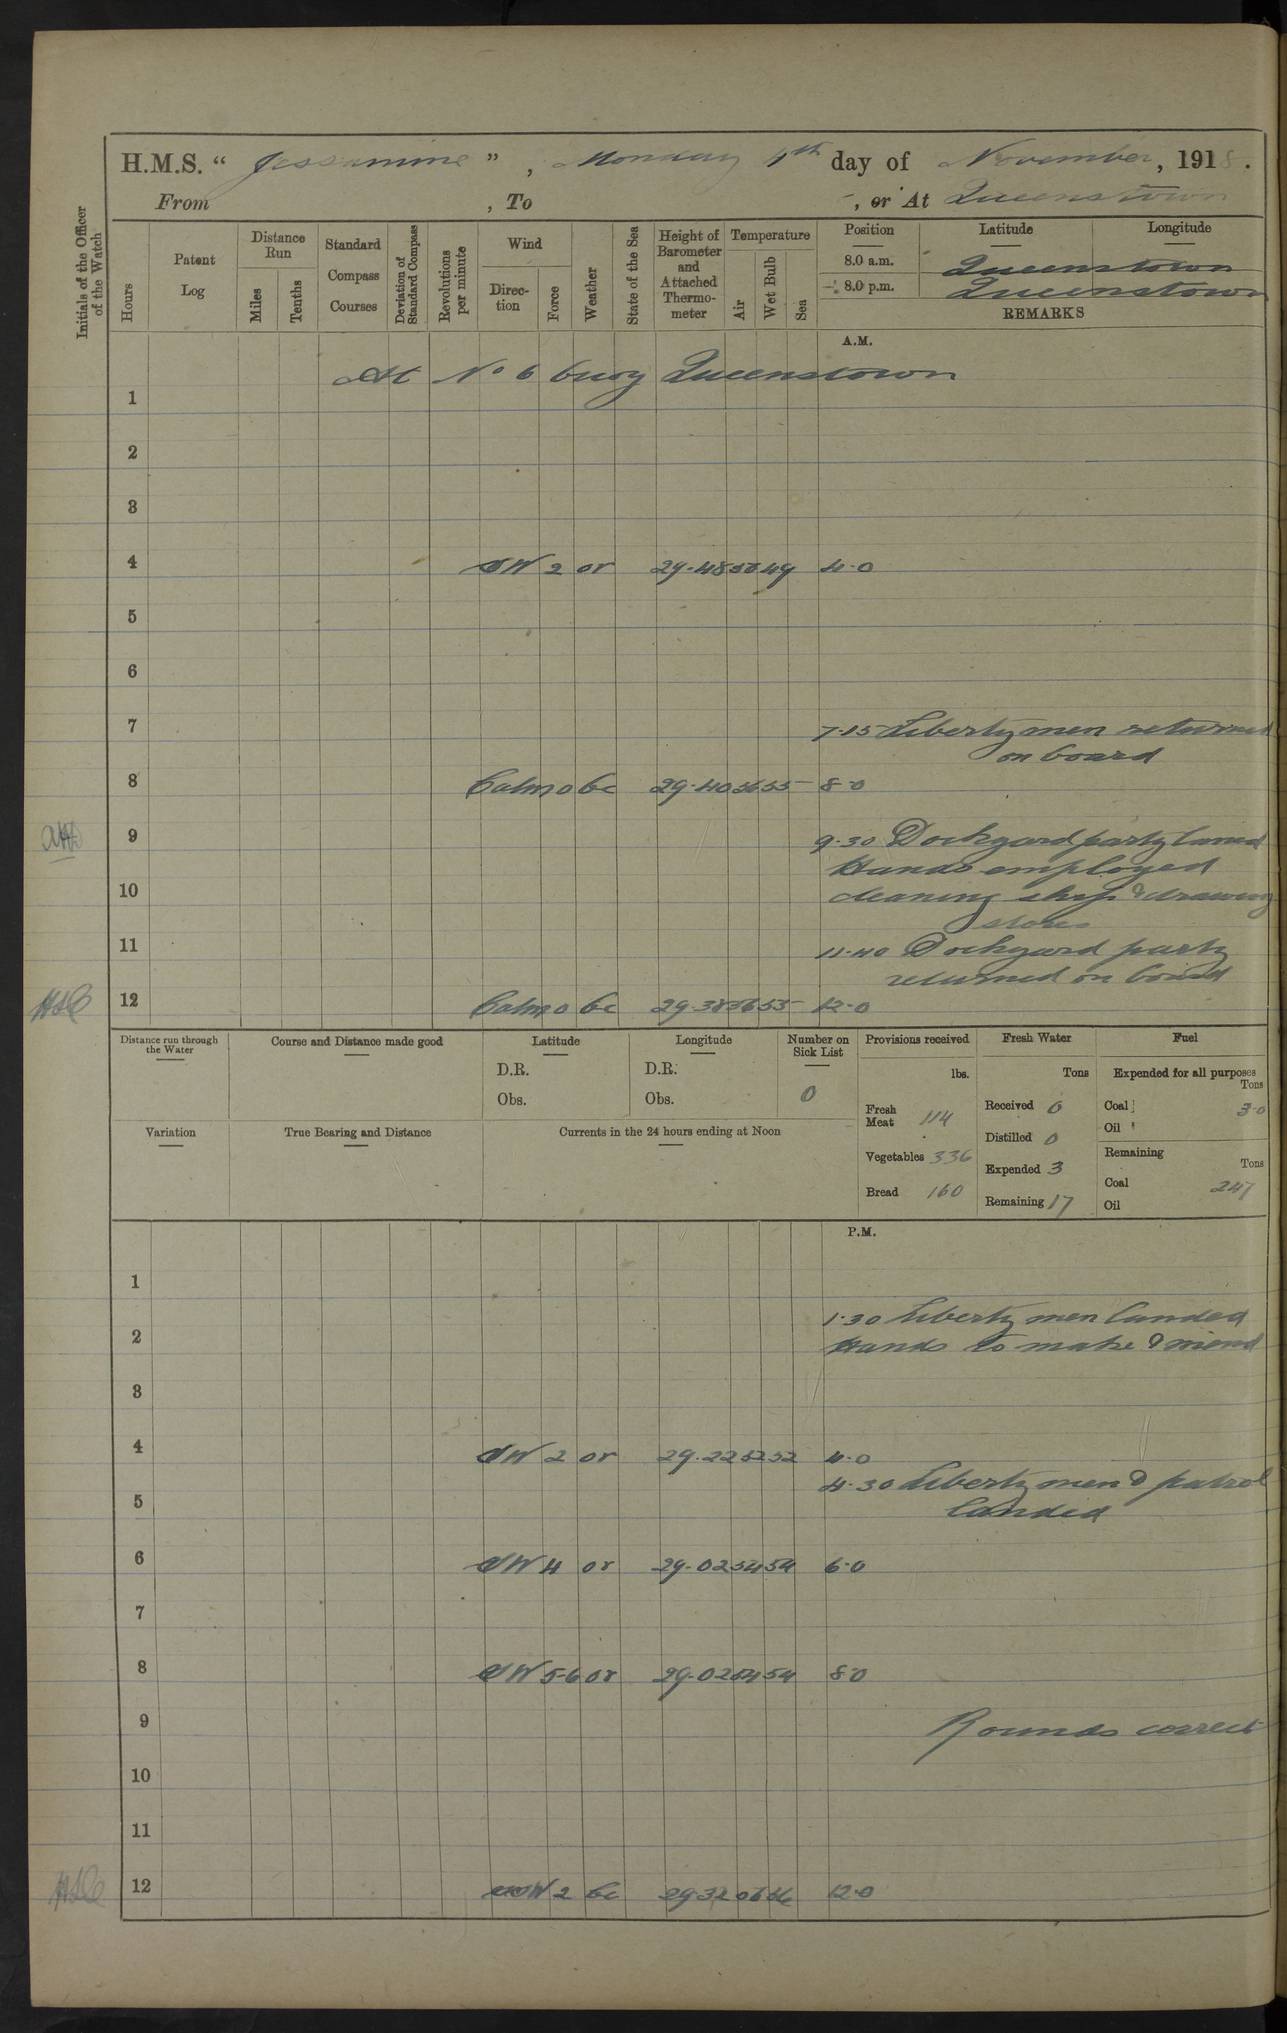 H.M.S. “ Jessamine ” , Monday 4th day of November, 1918.
From , To , or At Queenstown
Initials of the Officer of the Watch
Hours
Patent Log
Distance Run
Miles
Tenths
Standard Compass Courses
Deviation of Standard Compass
Revolutions per minute
Wind
Direction
Force
Weather
State of the Sea
Height of Barometer and Attached Thermometer
Temperature
Air
Wet Bulb
Sea
Position Latitude Longitude
8.0 a.m. Queenstown
8.0 p.m. Queenstown
REMARKS
A.M.
At No 6 buoy Queenstown
1
2
3
4 SW 2 or 29.48 49 4.0
5
6
7 7.15 Liberty men returned
on board
8 Calm 0 bc 29.40 56 55 8.0
9 9.30 Dockyard party landed
Hands employed
10 cleaning ship & drawing
stores
11 11.40 Dockyard party
returned on board
12 Calm 0 bc 29.38 56 55 12.0
Distance run through the Water
Course and Distance made good
Latitude
D.R.
Obs.
Longitude
D.R.
Obs.
Number on Sick List
0
Provisions received
lbs.
Fresh Meat 114
Vegetables 336
Bread 160
Fresh Water
Tons
Received 0
Distilled 0
Expended 3
Remaining 17
Fuel
Expended for all purposes
Tons
Coal 3.0
Oil
Remaining
Tons
Coal 247
Oil
Variation
True Bearing and Distance
Currents in the 24 hours ending at Noon
P.M.
1
1.30 Liberty men landed
2 Hands to make & mend
3
4 SW 2 or 29.22 52 52 4.0
4.30 Liberty men & patrol
5 landed
6 SW 4 or 29.02 54 54 6.0
7
8 SW 5-6 or 29.02 54 54 8.0
9 Rounds correct
10
11
12 W 2 bc 29.32 12.0